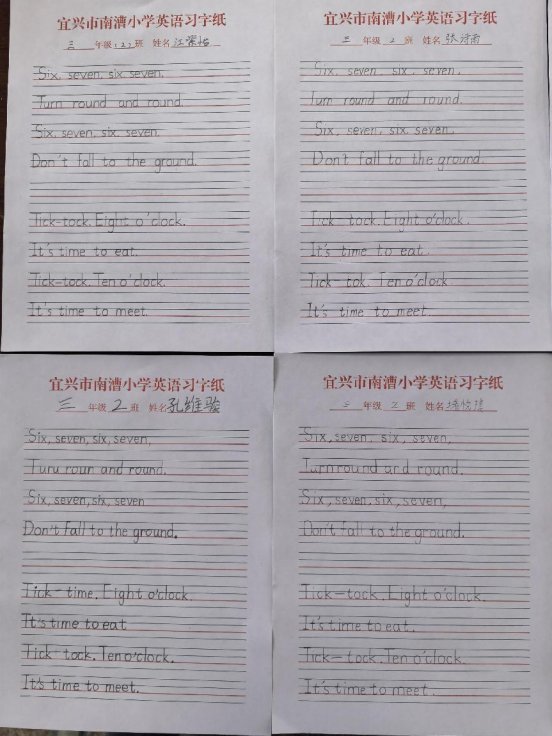 宜兴市南漕小学英语习字纸
三 年级(2)班 姓名
Six, seven, six, seven.
Turn round and round.
Six, seven, six, seven.
Don't fall to the ground.
Tick-tock. Eight o'clock.
It's time to eat.
Tick-tock. Ten o'clock.
It's time to meet.
宜兴市南漕小学英语习字纸
三 年级 2 班 姓名
Six, seven, six, seven,
Turn round and round.
Six, seven, six, seven,
Don't fall to the ground.
Tick-tock. Eight o'clock.
It's time to eat.
Tick-tok. Ten o'clock
It's time to meet.
宜兴市南漕小学英语习字纸
三 年级 2 班 姓名 孔维骏
Six, seven, six, seven,
Turu rour and round.
Six, seven, six, seven
Don't fall to the ground.
Tick-time. Eight o'clock.
It's time to eat
Tick-tock. Ten o'clock.
It's time to meet.
宜兴市南漕小学英语习字纸
三 年级 2 班 姓名
Six, seven, six, seven,
Turn round and round.
Six, seven, six, seven,
Don't fall to the ground.
Tick-tock. Eight o'clock.
It's time to eat.
Tick-tock. Ten o'clock.
It's time to meet.